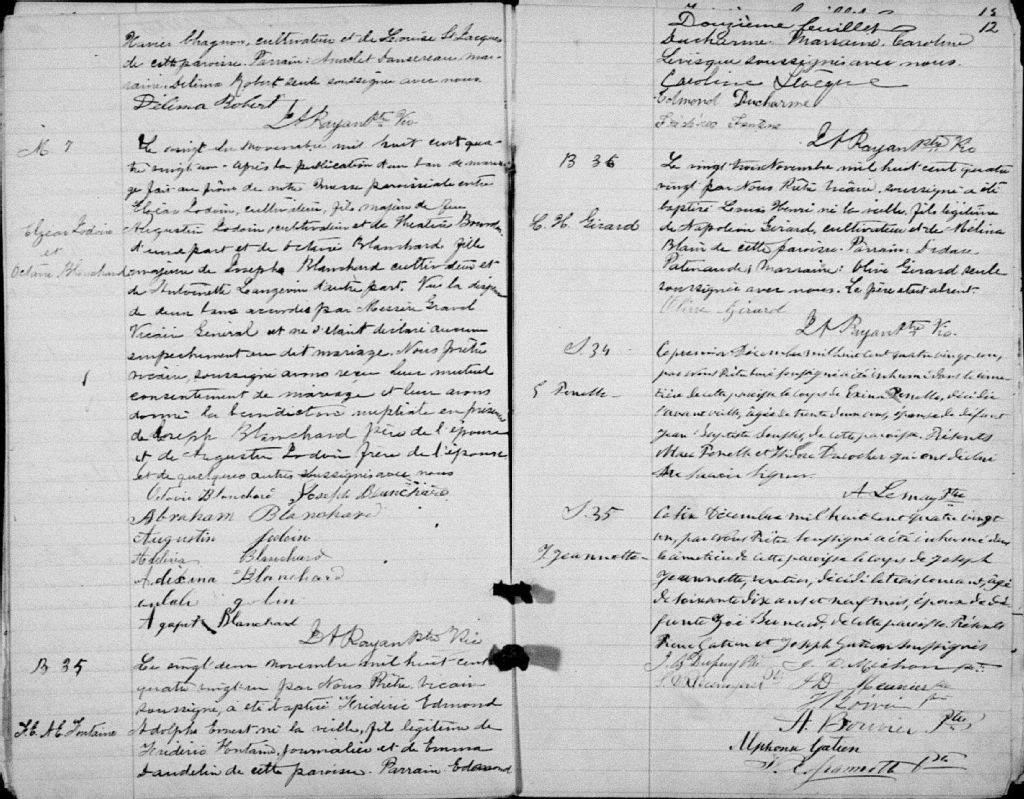 Xavier Chagnon, cultivateur et de Louise St Jacques
de cette paroisse. Parrain: Anaclet Sansereau, mar-
raine: Delima Robert seule soussignée avec nous.
Delima Robert
Ptre Vic.
M. 7
Elzear Lodoin
et
Octavie Blanchard
Le vingt du Novembre mil huit cent qua-
tre vingt un - après la publication d'un ban de maria-
ge fait au prône de notre Messe paroissiale entre
Elzéar Lodoin, cultivateur, fils majeur de feu
Augustin Lodoin, cultivateur et de
d'une part et de Octavie Blanchard fille
majeure de Joseph Blanchard cultivateur et
de Antoinette Langevin d'autre part. Vu la dispense
de deux bans accordés par Messire Grand
Vicaire Général et ne s'étant déclaré aucun
empêchement au dit mariage. Nous prêtre
vicaire, soussigné avons reçu leur mutuel
consentement de mariage et leur avons
donné la bénédiction nuptiale en présence
de Joseph Blanchard frère de l'épouse
et de Augustin Lodoin frère de l'épouse
et de quelques autres soussignés avec nous
Octavie Blanchard Joseph Blanchard
Abraham Blanchard
Augustin
Blanchard
Blanchard
Agapit Blanchard
Ptre Vic
B 35
Fc. Ad. E. Fontaine
Le vingt deux novembre mil huit cent
quatre vingt un par Nous Prêtre, Vicaire
soussigné, a été baptisé Frédéric Edmond
Adolphe Ernest né la veille, fils légitime de
Frédéric Fontaine, journalier et de Emma
Jaudelin de cette paroisse. Parrain Edmond
Douzième feuillet
12
Ducharme. Marraine. Caroline
Levesque soussignés avec nous.
Caroline
Edmond Ducharme
Ptre Vic
B 36
L. H. Girard
Le vingt trois Novembre mil huit cent quatre
vingt par Nous Prêtre Vicaire, soussigné a été
baptisé Louis Henri né la veille, fils légitime
de Napoleon Gerard, cultivateur et de Mélina
Blain de cette paroisse. Parrain: Didace
Patenaude, Marraine: Olive Gérard seule
soussignée avec nous. Le père était absent.
Olive Girard
Ptre Vic.
S. 34
E Penette
Le premier Décembre mil huit cent quatre vingt un,
par nous Prêtre Curé soussigné a été inhumé dans le cime-
tière de cette paroisse le corps de Exina Penette, décédée
l'avant veille, âgée de trente deux ans, épouse de défunt
Jean Baptiste de cette paroisse. Présents
qui ont déclaré
ne savoir signer.
A Lemay Ptre
S. 35
J Jeannotte
Le six Décembre mil huit cent quatre vingt
un, par nous Prêtre soussigné a été inhumé dans
le cimetière de cette paroisse le corps de Joseph
Jeannotte, rentier, décédé le trois courant, âgé
de soixante dix ans et neuf mois, époux de dé-
funte Zoé Bernard, de cette paroisse. Présents
Pierre Gatien et Joseph Gatien soussignés
J. Bte Dupuy Ptre
Meunier
Alphonse Gatien
Jeannotte Ptre